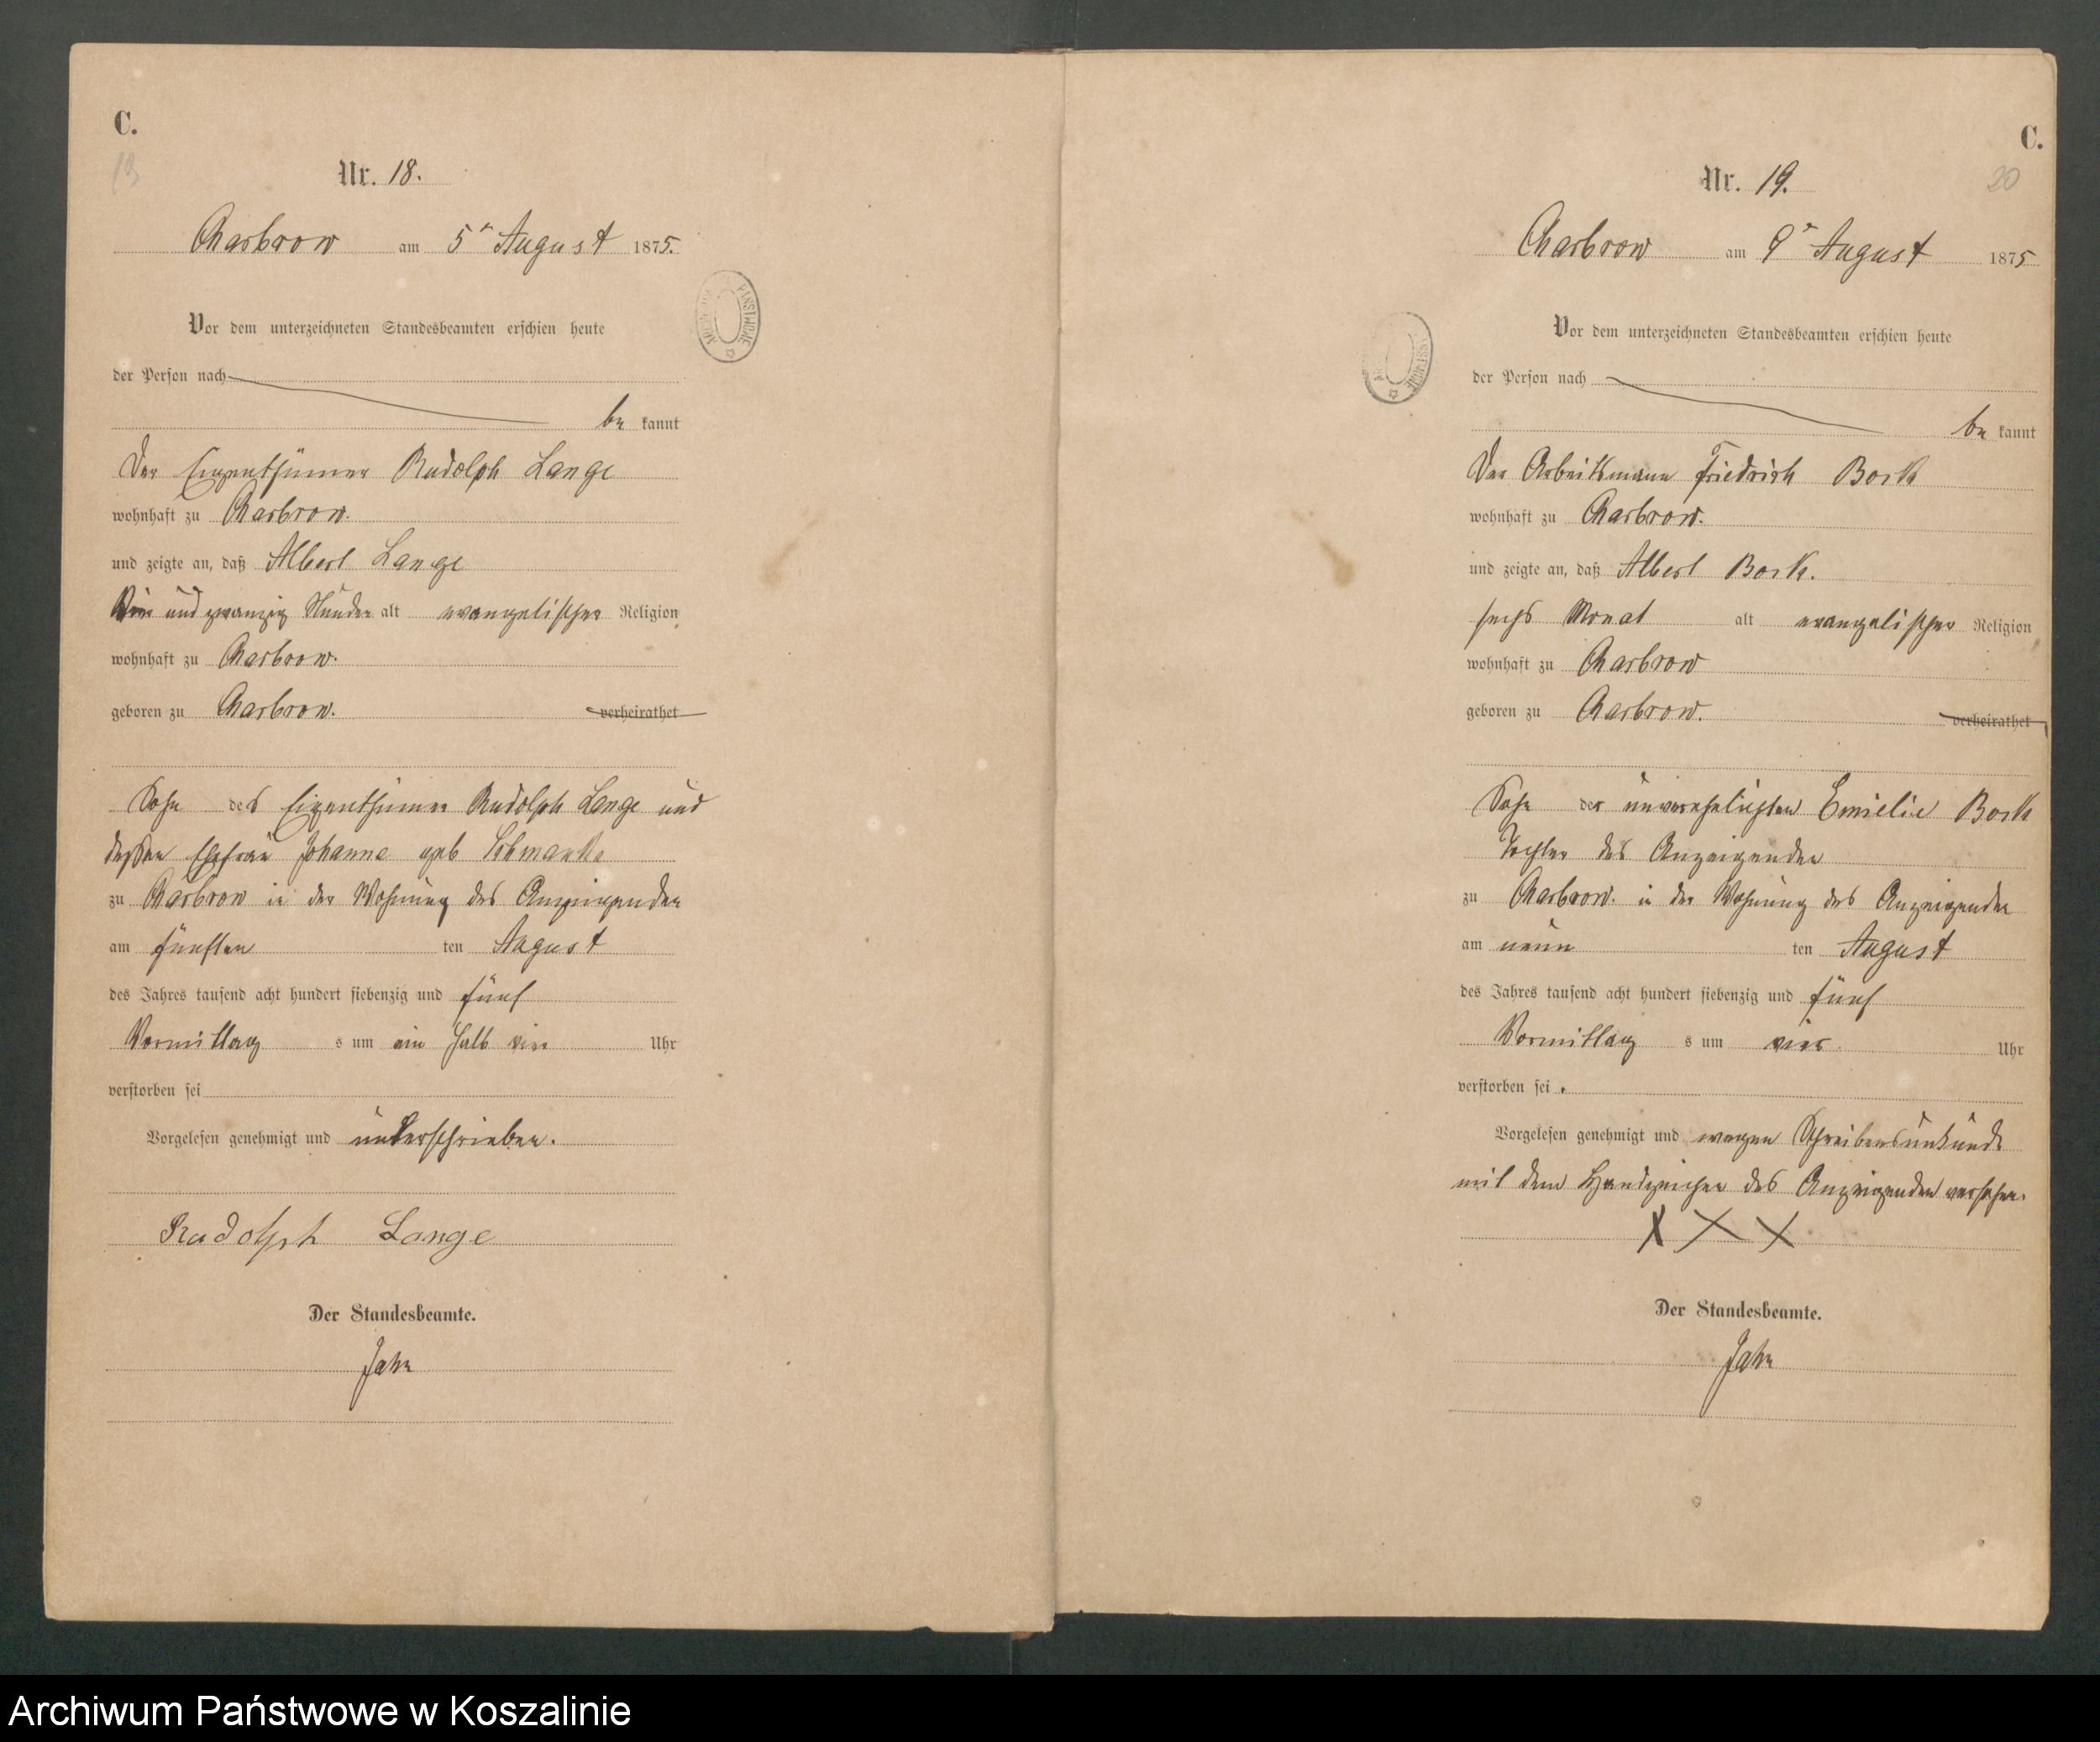 C.
19
Nr. 18.
Charbrow am 5n August 1875.
Vor dem unterzeichneten Standesbeamten erschien heute
der Person nach
be kannt
Der Eigenthümer Rudolph Lange
wohnhaft zu Charbrow.
und zeigte an, daß Albert Lange
Vier und zwanzig Stunden alt evangelischer Religion
wohnhaft zu Charbrow.
geboren zu Charbrow. verheirathet
Sohn des Eigenthümer Rudolph Lange und
dessen Ehefrau Johanna geb
zu Charbrow in der Wohnung des Anzeigenden
am fünften ten August
des Jahres tausend acht hundert siebenzig und fünf
Vormittag s um ein halb vier Uhr
verstorben sei
Vorgelesen genehmigt und unterschrieben.
Rudolph Lange
Der Standesbeamte.
Jahn
C.
20
Nr. 19.
Charbrow am 9n August 1875
Vor dem unterzeichneten Standesbeamten erschien heute
der Person nach
be kannt
Der Arbeitsmann Friedrich Bork
wohnhaft zu Charbrow.
und zeigte an, daß Albert Bork.
sechs Monat alt evangelischer Religion
wohnhaft zu Charbrow
geboren zu Charbrow. verheirathet
Sohn der unverehelichten Emielie Bork
Tochter des Anzeigenden
zu Charbrow. in der Wohnung des Anzeigenden
am neun ten August
des Jahres tausend acht hundert siebenzig und fünf
Vormittag s um vier Uhr
verstorben sei.
Vorgelesen genehmigt und wegen Schreibensunkunde
mit dem Handzeichen des Anzeigenden versehen.
X X X
Der Standesbeamte.
Jahn
Archiwum Państwowe w Koszalinie